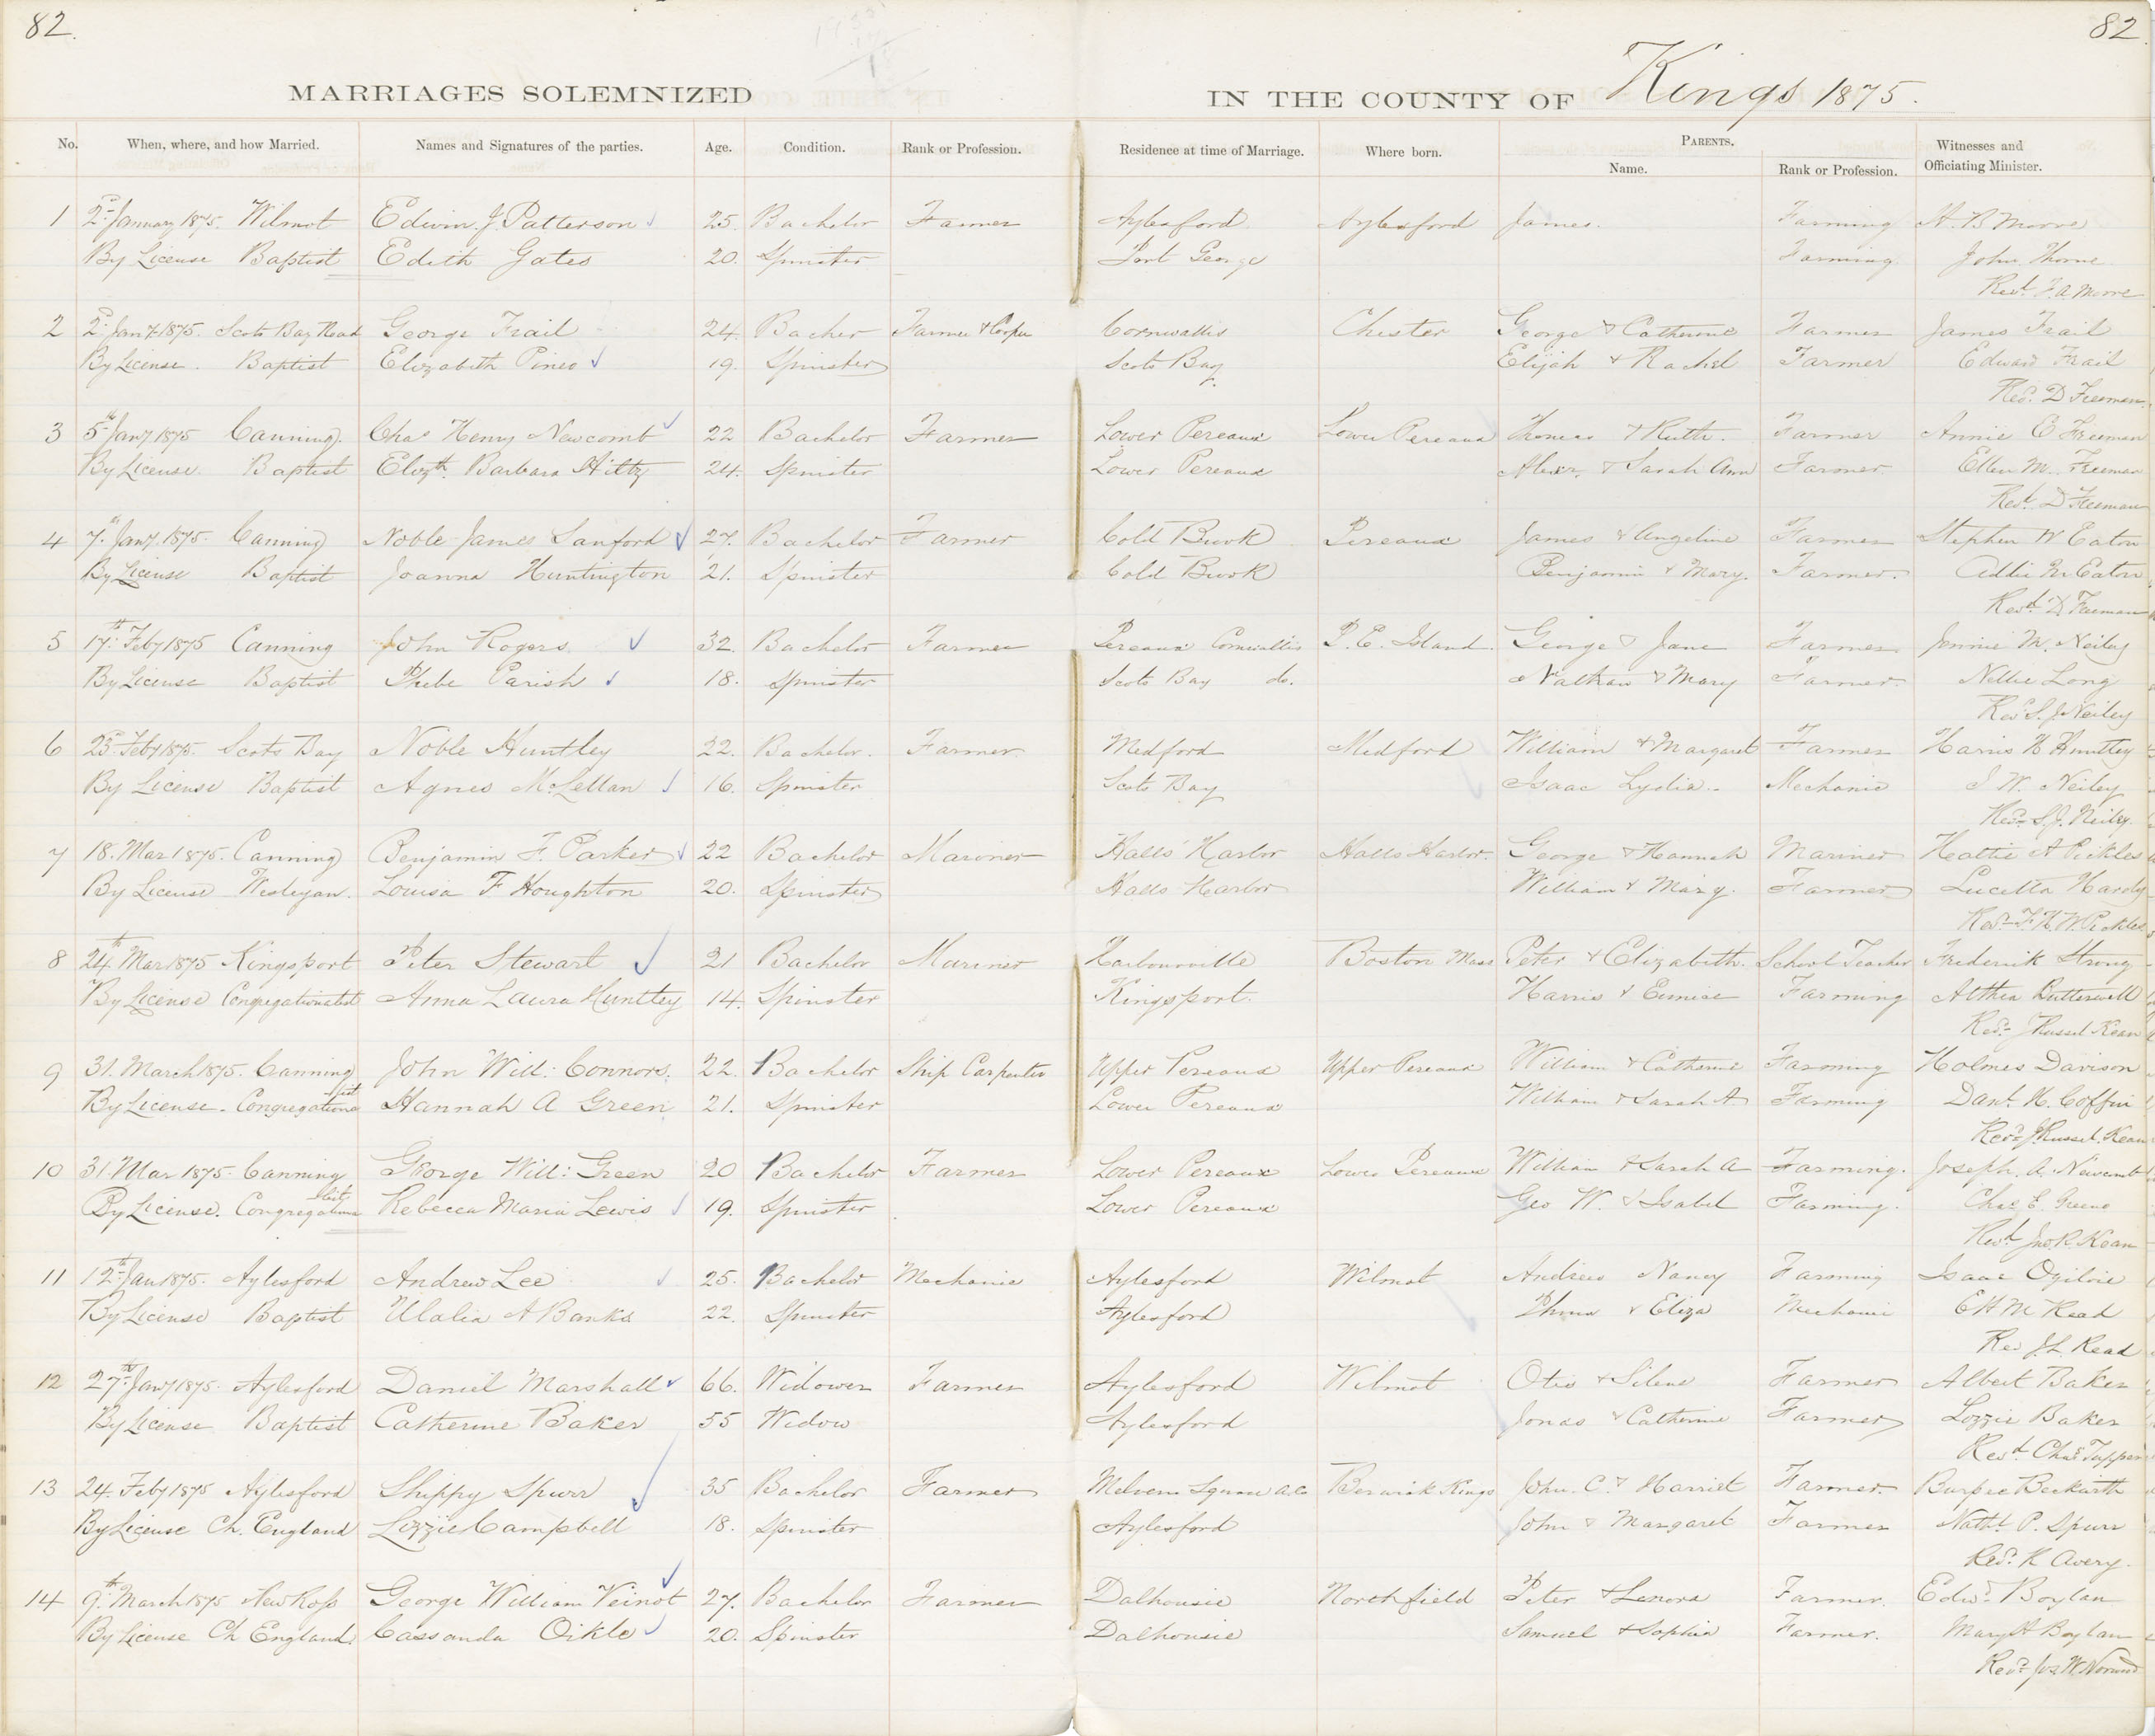 82.
82
MARRIAGES SOLEMNIZED IN THE COUNTY OF Kings 1875.
No. When, where, and how Married. Names and Signatures of the parties. Age. Condition. Rank or Profession. Residence at time of Marriage. Where born. PARENTS. Witnesses and
Name. Rank or Profession. Officiating Minister.
1 2d January 1875. Wilmot Edwin J Patterson 25. Bachelor Farmer Aylesford. Aylesford James. Farming H. B Moore
By License Baptist Edith Gates 20. Spinster Port George Farming John Thorne
Revd. F. A Moore
2 2d Jany 1875. Scots Bay Road George Trail 24. Bacher Farmer & Cooper Cornwallis Chester George & Catherine Farmer James Trail
By License. Baptist Elizabeth Pineo 19. Spinster Scots Bay Elijah & Rachel Farmer Edward Trail
Revd. D Freeman.
3 5th Jany 1875 Canning. Chas Henry Newcomb 22 Bachelor Farmer Lower Pereaux Lower Pereaux Thomas & Ruth. Farmer Annie E Freeman
By License. Baptist Elizth. Barbara Hiltz 24. Spinster Lower Pereaux Alexr. & Sarah Ann Farmer. Ellen M. Freeman
Revd. D Freeman
4 7th Jany. 1875. Canning Noble James Sanford 27. Bachelor Farmer Cold Brook Pereaux James & Angeline Farmer Stephen W Eaton
By License Baptist Joanna Huntington 21. Spinster Cold Brook Benjamin & Mary. Farmer. Addie M Eaton
Revd. D Freeman
5 17th Feby 1875 Canning John Rogers 32. Bachelor Farmer Pereaux Cornwallis P. E. Island. George & Jane Farmer Jennie M. Neiley
By License Baptist Phebe Parish 18. Spinster Scots Bay do. Nathan & Mary Farmer. Nellie Long
Revd S. J Neiley
6 23d Feby 1875. Scots Bay Noble Huntley 22. Bachelor. Farmer. Medford Medford William & Margaret Farmer Harris H Huntley
By License Baptist Agnes McLellan 16. Spinster Scots Bay Isaac Lydia. Mechanic J W. Neiley
Revd. S. J. Neiley.
7 18. Mar 1875. Canning Benjamin F. Parker 22 Bachelor Mariner Halls Harbor Halls Harbor. George & Hannah Mariner Hattie A Pickles
By License Wesleyan. Louisa F. Houghton 20. Spinster Halls Harbor William & Mary. Farmer Lucetta Hardy
Revd. F. H. W. Pickles
8 24th Mar 1875 Kingsport Peter Stewart 21 Bachelor Mariner Harbourville Boston Mass Peter & Elizabeth. School Teacher Frederick Strong
By License Congregationalist Anna Laura Huntley 14. Spinster Kingsport. Harris & Eunice Farming Althea Butterwell
Revd. J Russel Kean
9 31. March 1875. Canning John Will: Connors. 22. Bachelor Ship Carpenter Upper Pereaux Upper Pereaux William & Catherine Farming Holmes Davison
By License. Congregationalist Hannah A Green 21. Spinster Lower Pereaux William & Sarah A Farming Danl. H. Coffin
Revd. J. Russel. Kean
10 31. Mar 1875. Canning George Will: Green 20 Bachelor Farmer Lower Pereaux Lower Pereaux William & Sarah A Farming. Joseph. A. Newcomb
By License. Congregationalist Rebecca Maria Lewis 19. Spinster Lower Pereaux Geo W. & Isabel Farming. Chas E. Greeno
Revd. Jno R. Kean
11 12th Jan 1875. Aylesford Andrew Lee 25. Bachelor Mechanic Aylesford Wilmot Andrew Nancy Farming Isaac Ogilvie
By License Baptist Ulalia A Banks 22. Spinster Aylesford & Eliza Mechanic E H M Read
Rev J. L. Read
12 27th Jany 1875. Aylesford Daniel Marshall 66. Widower Farmer Aylesford Wilmot Otis & Silene Farmer Albert Baker
By License Baptist Catherine Baker 55 Widow Aylesford Jonas & Catherine Farmer Lizzie Baker
Revd. Chas Tupper
13 24. Feby 1875 Aylesford Shippy Spurr 35 Bachelor Farmer Melvern Square A. Co Berwick Kings John. C. & Harriet Farmer. Burpee Beckwith
By License Ch. England Lizzie Campbell 18. Spinster Aylesford John & Margaret Farmer Nathl. P. Spurr
Revd. R Avery.
14 9th. March 1875 New Ross George William Veinot 27. Bachelor Farmer Dalhousie Northfield Peter & Lenora Farmer. Edwd. Boylan
By License Ch England. Cassanda Oikle 20. Spinster Dalhousie Samuel & Sophia Farmer. Mary A Boylan
Revd. Jos W. Norwood